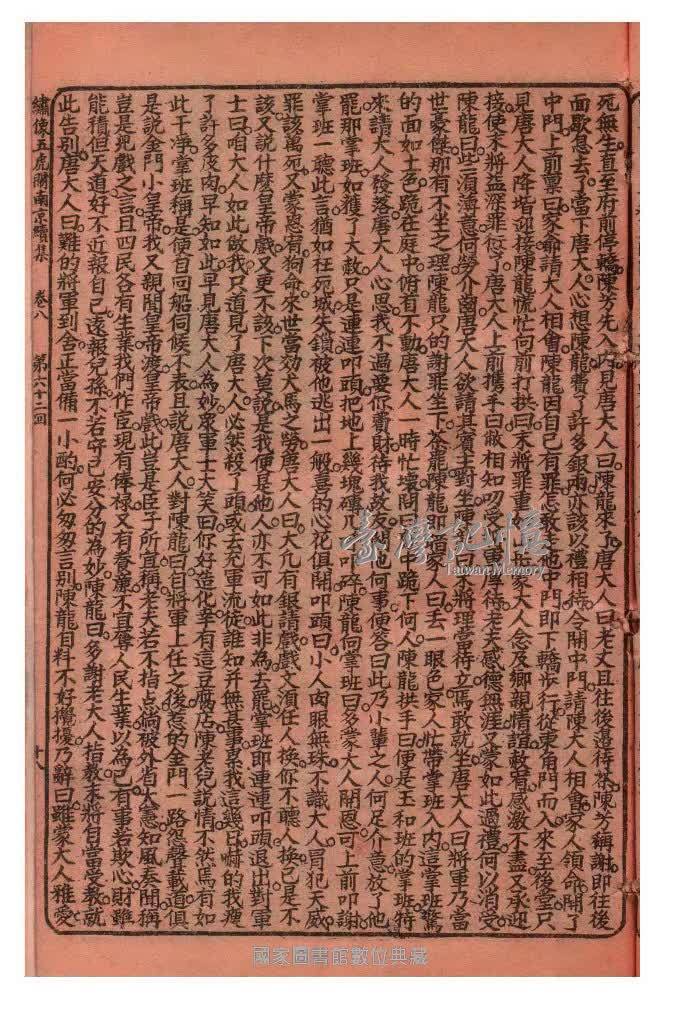 死無生直至府前停轎陳芳先入內見唐大人曰陳龍來了唐大人曰老丈且往後邊待茶陳芳稱謝即往後
面歇息去了當下唐大人心想陳龍費了許多銀兩亦該以禮相待令開中門請陳大人相會家人領命開了
中門上前禀曰家爺請大人相會陳龍因自己有罪怎敢中門即下轎步行從東角門而入來至後堂只
見唐大人降堦迎接陳龍慌忙向前打拱曰末將罪重大人念及鄉親情誼赦宥感激不盡又承迎
接使末將益深罪唐大人上前攜手曰敝相知叨受待老夫感德無涯又蒙如此過禮何以消受
陳龍曰些須薄意何勞介齒唐大人欲請其賓主對生陳將理當侍立焉敢就坐唐大人曰將軍乃當
世豪傑那有不坐之理陳龍只的謝罪坐下茶罷陳龍即人曰丟一眼色家人忙帶掌班入內這掌班驚
的面如土色跪在庭中俯首不動唐大人一時忙壞問曰中跪下何人陳龍拱手曰便是玉和班的掌班特
來請大人發落唐大人心思我不過要你費財待我故友他何事便答曰此乃小輩之人何足介意放了他
罷那掌班如獲了大赦只是連連叩頭把地上幾塊磚几叩碎陳龍向掌班曰多蒙大人開恩可上前叩謝
掌班一聽此言猶如枉死城失鎖被他逃出一般喜的心花俱開叩頭曰小人肉眼無珠不識大人冒犯天威
罪該萬死又蒙恕宥狗命來世當效犬馬之勞唐大人曰大凡有銀請戲戲文須任人換你不聽人換已是不
該又說什麼皇帝戲又更不該下次莫說是我便是他人亦不可如此非為去罷掌班即連連叩頭退出對軍
士曰咱大人如此做我只道見了唐大人必然殺了頭或去充軍流徒誰知并無甚事累我這幾日嚇的我瘦
了許多皮肉早知如此早見唐大人為妙眾軍士大笑曰你好造化幸有這豆腐店陳老兒說情不然焉有如
此干净掌班稱是便自回船伺候不表且說唐大人對陳龍曰自將軍上任之後惹的金門一路怨聲載道俱
是說金門小皇帝我又親聞皇帝渡皇帝戲此豈是臣子所宜稱老夫若不指点倘被外省大憲知風奏聞稱
豈是兒戲之言且四民各有生業我們作宦現有俸祿又有養廉不宜辱人民生業以為己有事若欺心財雖
能積但天道好不近報自己遠報兒孫不若守己安分的為妙陳龍曰多謝老大人指教末將自當受教就
此告別唐大人曰難的將軍到舍正當備一小酌何必匆匆言別陳龍自料不好攪擾乃辭曰雖蒙大人雅愛
繡像五虎鬧南京續集 卷八 第六十二回 十八
臺灣記憶
Taiwan Memory
國家圖書館數位典藏